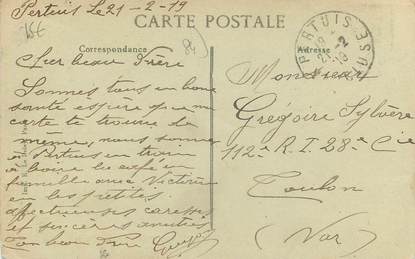 Pertuis Le 21-2-19
CARTE POSTALE
Correspondance
Adresse
PERTUIS
VAUCLUSE
21-2
19
Cher beau Frère
Sommes tous en bone
santé espère que ma
carte te trouve de
même, nous sommes
a Pertuis en train
a boire le café en
famille avec Victorin
et les petites.
affectueuses caresses
et sincères amitiés
Ton beau Frère
Monsieur
Grégoire Sylvère
112e R. I. 28e Cie
Toulon
(Var)